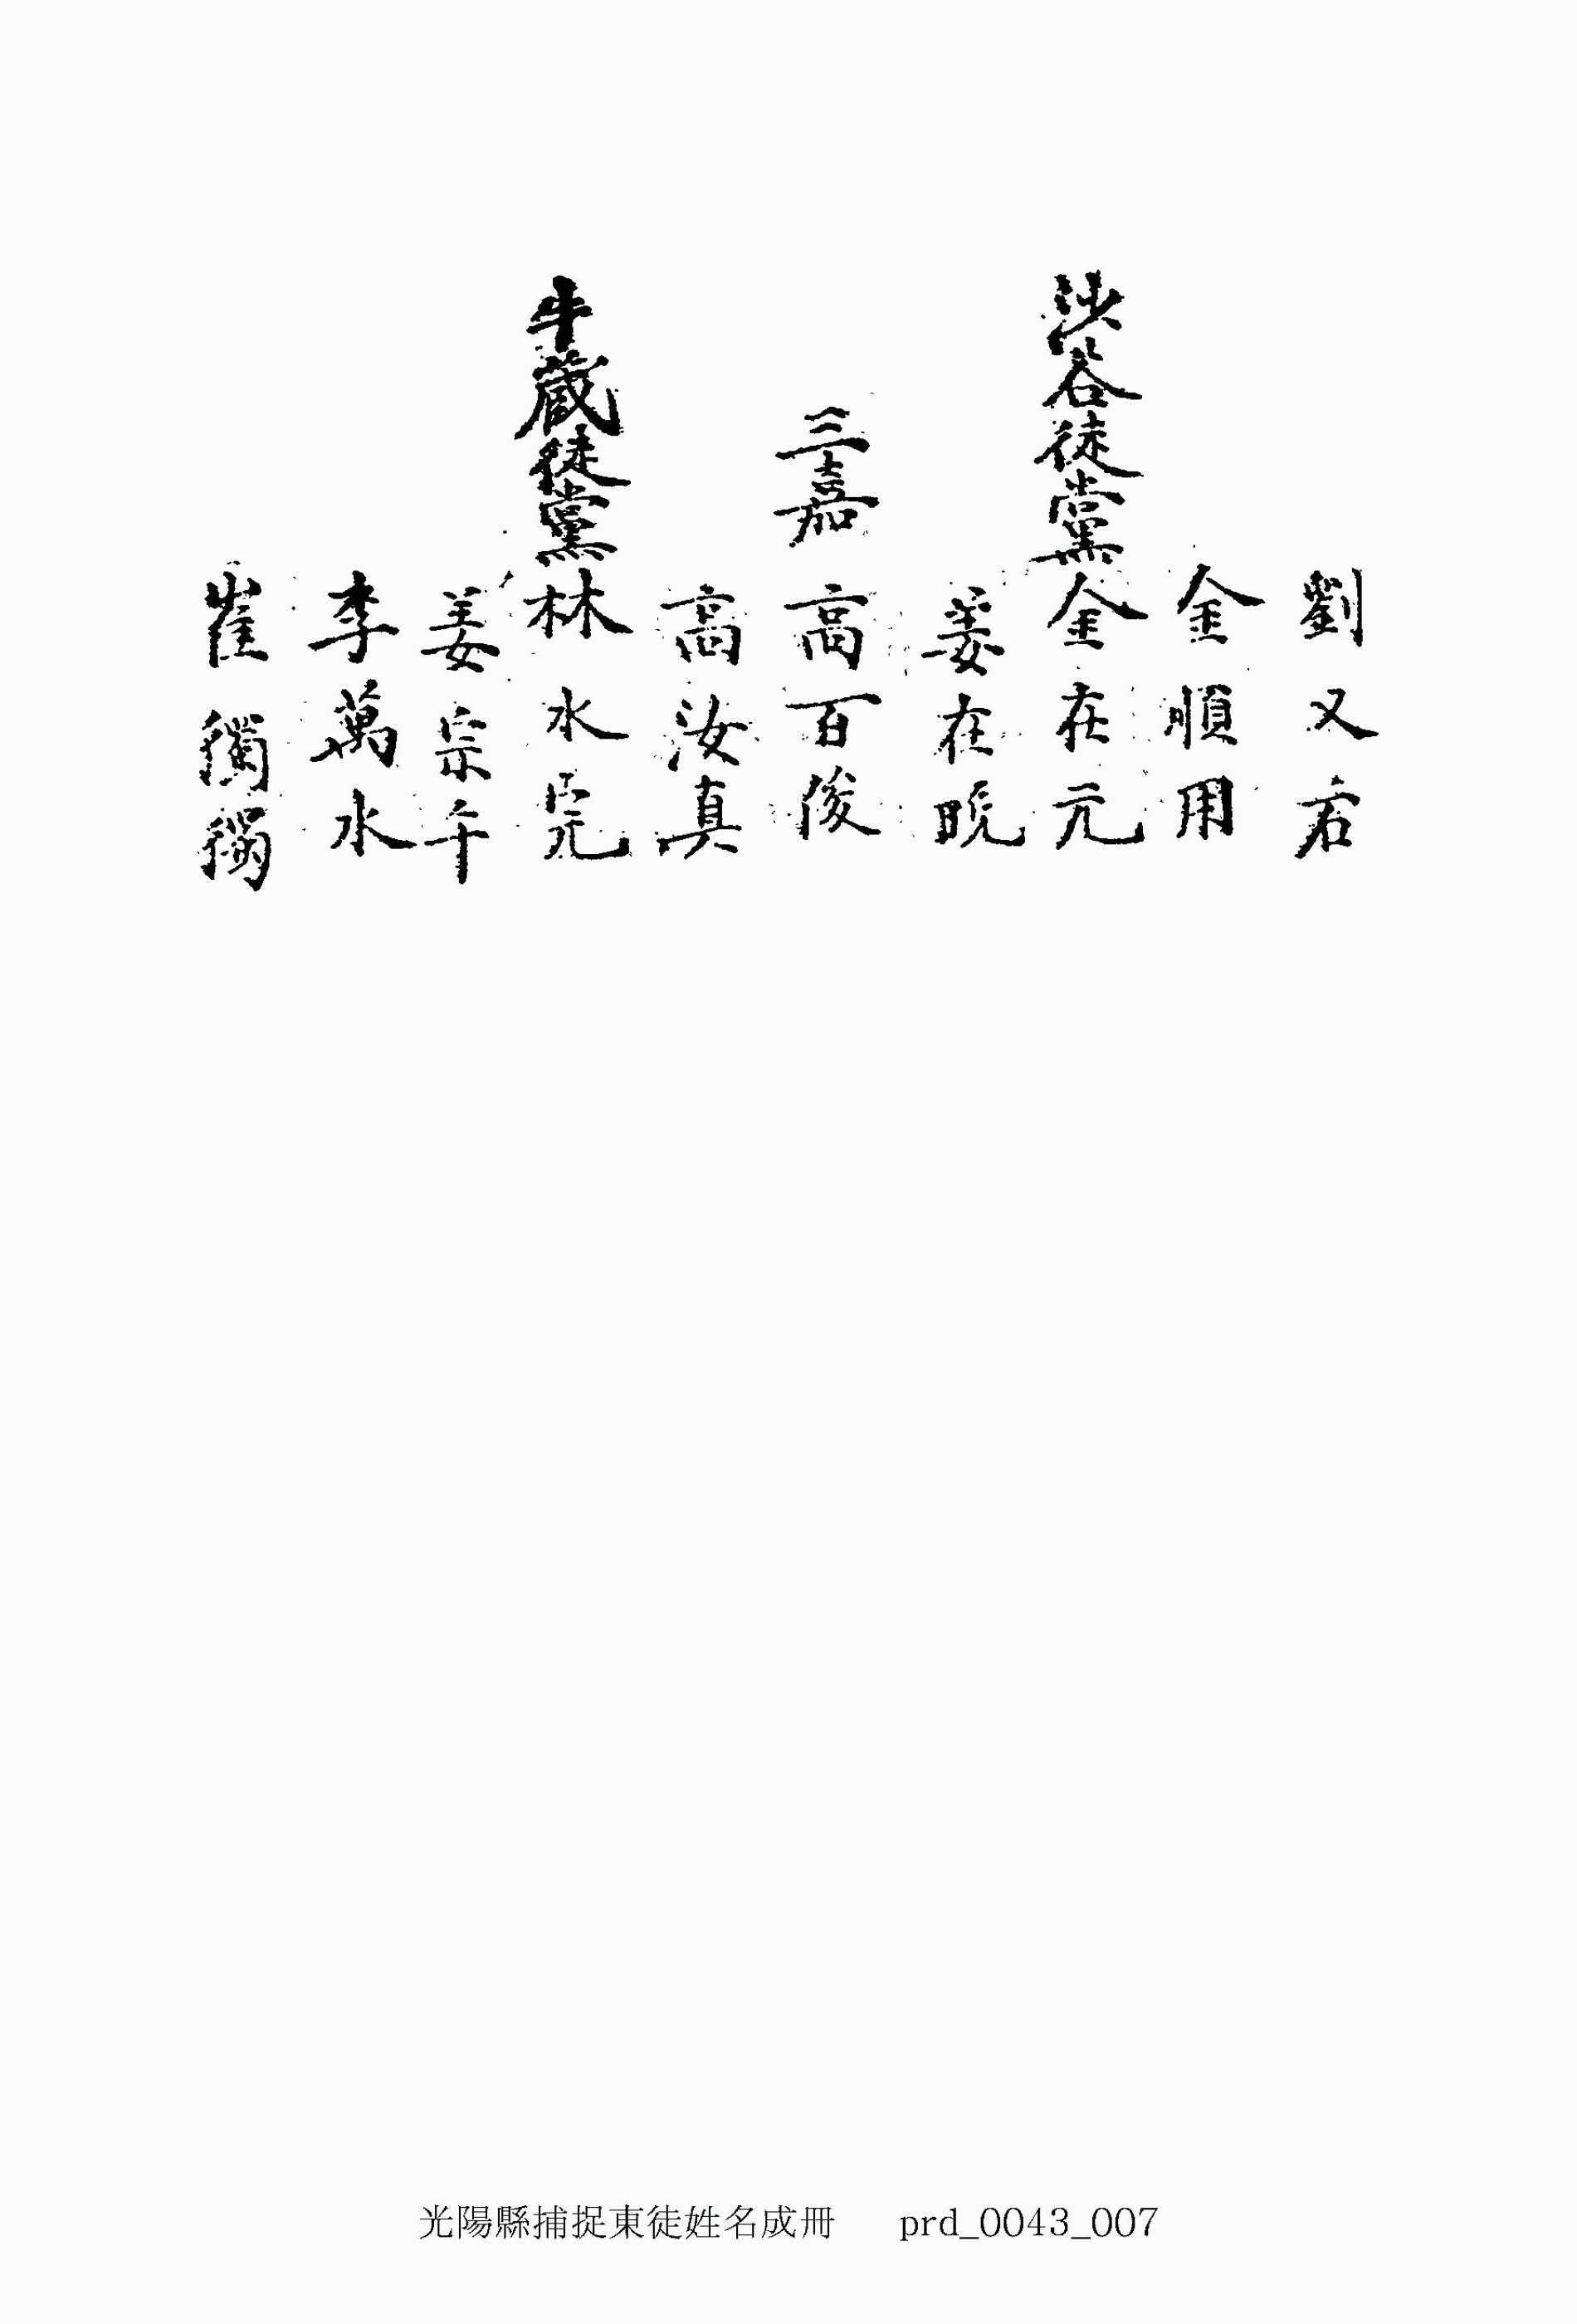 劉又君
金順用
沙谷徒黨金在元
姜在晩
三嘉 高百俊
高汝真
牛藏徒黨林水
姜宗午
李萬水
崔獨
光陽縣捕捉東徒姓名成冊 prd_0043_007